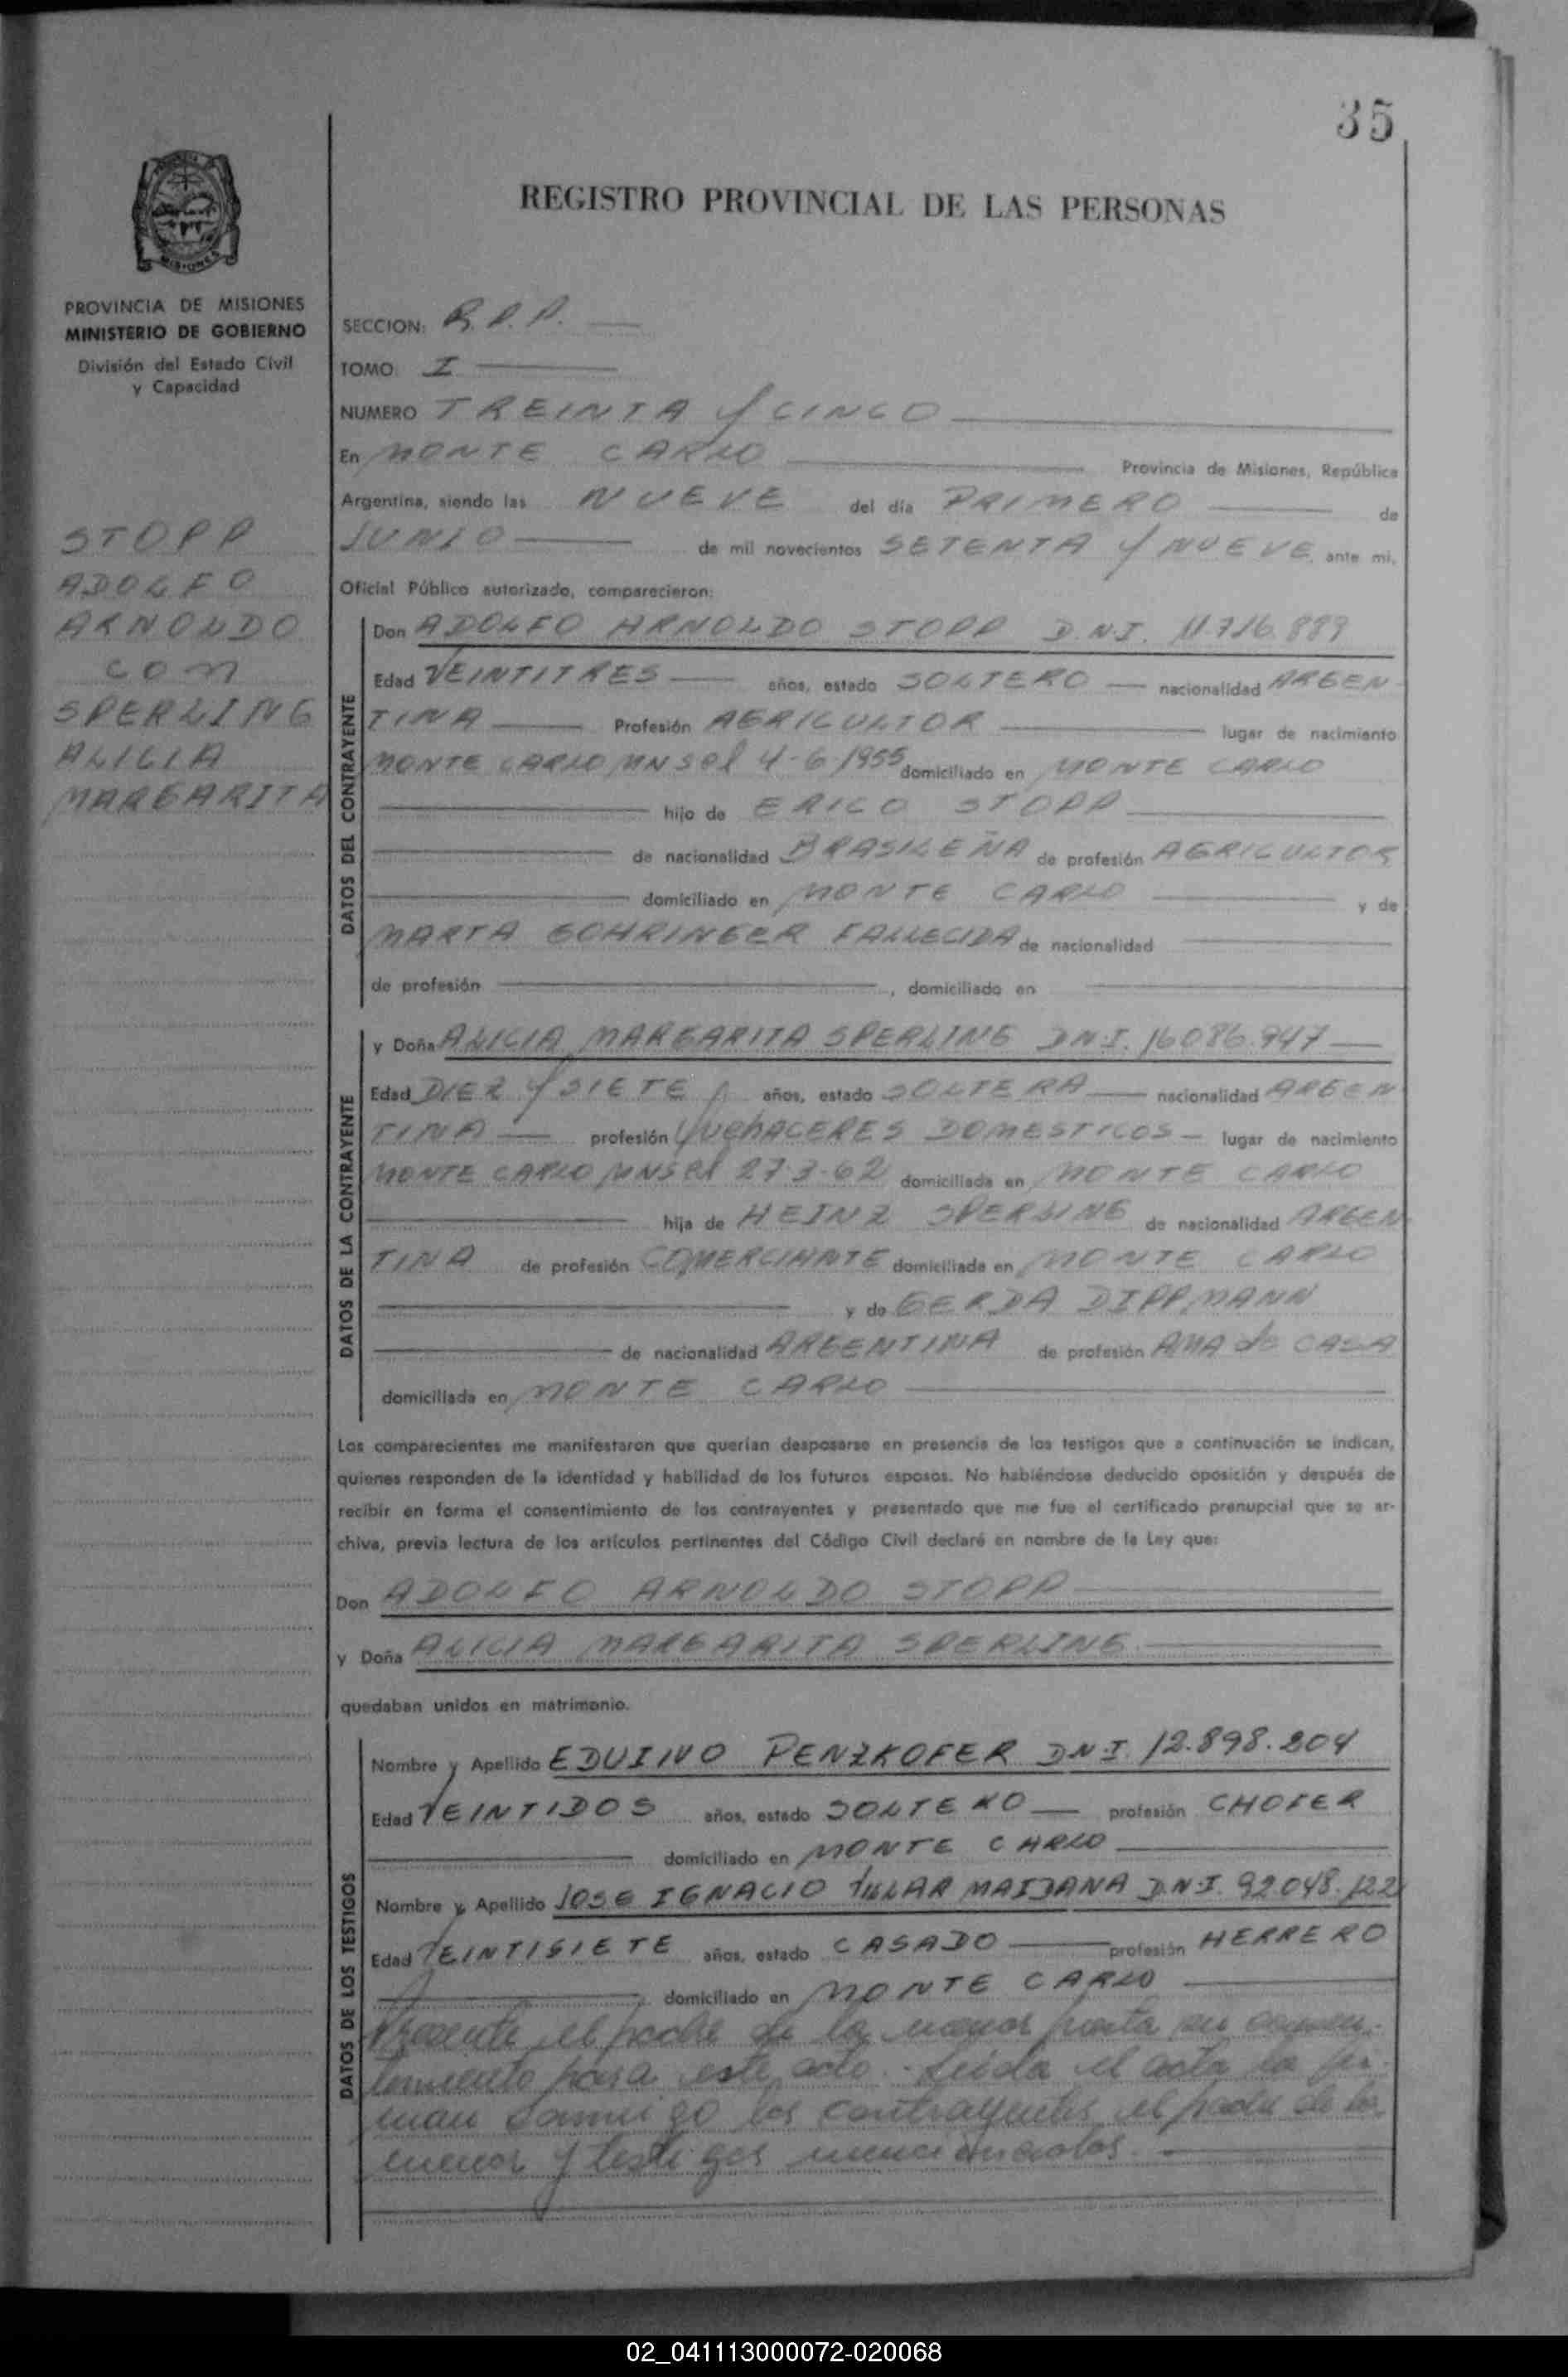 35
REGISTRO PROVINCIAL DE LAS PERSONAS
MISIONES
PROVINCIA DE MISIONES
MINISTERIO DE GOBIERNO
División del Estado Civil
y Capacidad
STOPP
ADOLFO
ARNOLDO
con
SPERLING
ALICIA
MARGARITA
SECCION: R.P.P.
TOMO I
NUMERO TREINTA Y CINCO
En MONTE CARLO Provincia de Misiones, República
Argentina, siendo las NUEVE del día PRIMERO de
JUNIO de mil novecientos SETENTA Y NUEVE ante mi,
Oficial Público autorizado, comparecieron:
DATOS DEL CONTRAYENTE
Don ADOLFO ARNOLDO STOPP D.N.I. 11.716.889
Edad VEINTITRES años, estado SOLTERO nacionalidad ARGEN
TINA Profesión AGRICULTOR lugar de nacimiento
MONTE CARLO MNS el 4-6-1955 domiciliado en MONTE CARLO
hijo de ERICO STOPP
de nacionalidad BRASILEÑA de profesión AGRICULTOR
domiciliado en MONTE CARLO y de
MARTA GOHRINGER FALLECIDA de nacionalidad
de profesión , domiciliado en
DATOS DE LA CONTRAYENTE
y Doña ALICIA MARGARITA SPERLING D.N.I. 16086.947
Edad DIEZ Y SIETE años, estado SOLTERA nacionalidad ARGEN
TINA profesión QUEHACERES DOMESTICOS lugar de nacimiento
MONTE CARLO MNS el 27-3-62 domiciliada en MONTE CARLO
hija de HEINZ SPERLING de nacionalidad ARGEN
TINA de profesión COMERCIANTE domiciliada en MONTE CARLO
y de GERDA DIPPMANN
de nacionalidad ARGENTINA de profesión AMA de CASA
domiciliada en MONTE CARLO
Los comparecientes me manifestaron que querían desposarse en presencia de los testigos que a continuación se indican,
quienes responden de la identidad y habilidad de los futuros esposos. No habiéndose deducido oposición y después de
recibir en forma el consentimiento de los contrayentes y presentado que me fue el certificado prenupcial que se ar-
chiva, previa lectura de los artículos pertinentes del Código Civil declaré en nombre de la Ley que:
Don ADOLFO ARNOLDO STOPP
y Doña ALICIA MARGARITA SPERLING
quedaban unidos en matrimonio.
DATOS DE LOS TESTIGOS
Nombre y Apellido EDUINO PENZKOFER D.N.I. 12.898.204
Edad VEINTIDOS años, estado SOLTERO profesión CHOFER
domiciliado en MONTE CARLO
Nombre y Apellido JOSE IGNACIO MAIDANA D.N.I. 92048.122
Edad VEINTISIETE años, estado CASADO profesión HERRERO
domiciliado en MONTE CARLO
Presente el padre de la menor presta su consen-
timiento para este acto. Leída el acta la fir-
man conmigo los contrayentes, el padre de la
menor y testigos mencionados.
02_041113000072-020068